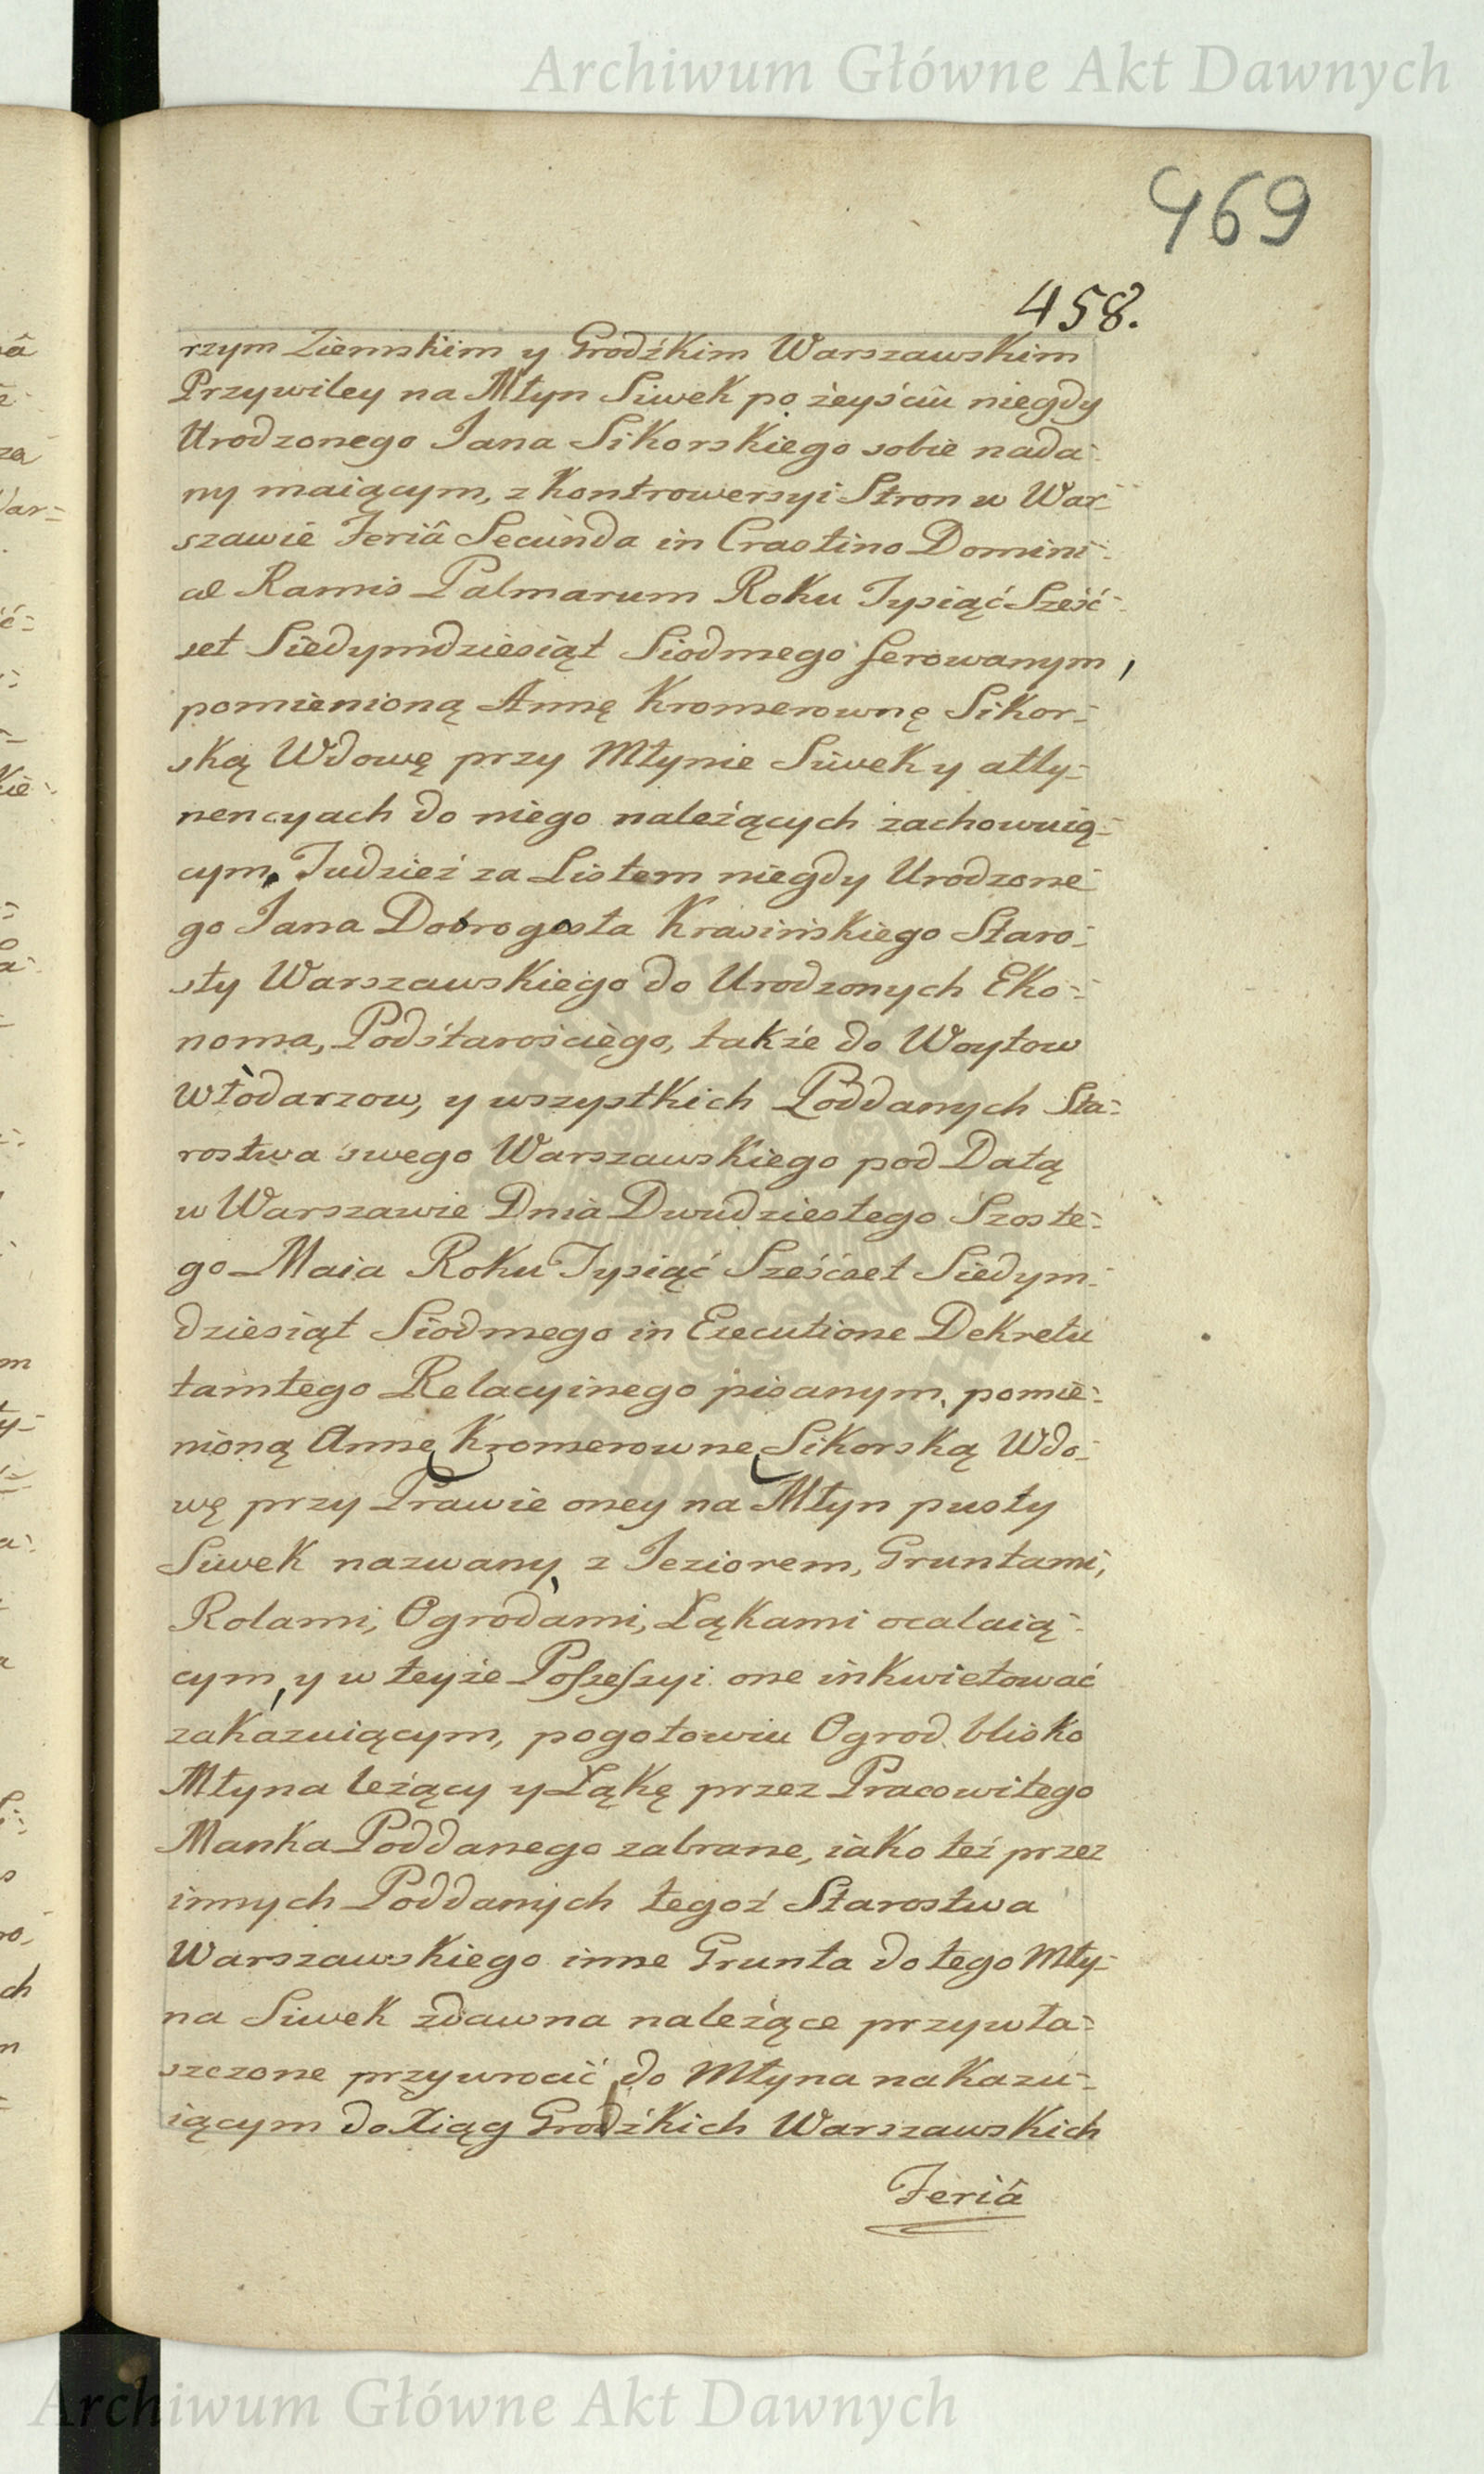 Archiwum Główne Akt Dawnych
469
458.
rzym Ziemskim y Grodźkim Warszawskim
Przywiley na Młyn Siwek po zeyściu niegdy
Urodzonego Jana Sikorskiego sobie nada-
ny maiącym, z Kontrowersyi Stron w War-
szawie Feriâ Secunda in Crastino Domini-
cæ Ramis Palmarum Roku Tysiąć Sześć-
set Siedymdziesiąt Siodmego ferowanym,
pomienioną Annę Kromerownę Sikor-
ską Wdowę przy Młynie Siwek y atty-
nencyach do niego należących zachowuią-
cym, Tudzież za Listem niegdy Urodzone-
go Jana Dobrogosta Krasińskiego Staro-
sty Warszawskiego do Urodzonych Eko-
noma, Podstarościego, także do Woytow
Włodarzow, y wszystkich Poddanych Sta-
rostwa swego Warszawskiego pod Datą
w Warszawie Dnia Dwudziestego Szoste-
go Maia Roku Tysiąć Sześćset Siedym-
dziesiąt Siodmego in Executione Dekretu
tamtego Relacyinego pisanym, pomie-
nioną Annę Kromerownę Sikorską Wdo-
wę przy Prawie oney na Młyn pusty
Siwek nazwany, z Jeziorem, Gruntami,
Rolami, Ogrodami, Łąkami ocalaią-
cym, y w teyże Possessyi one inkwietować
zakazuiącym, pogotowiu Ogrod blisko
Młyna leżący y Łąkę przez Pracowitego
Manka Poddanego zabrane, iako też przez
innych Poddanych tegoż Starostwa
Warszawskiego inne Grunta do tego Mły-
na Siwek zdawna należące przywła-
szczone przywrocić do Młyna nakazu-
iącym do Xiąg Grodźkich Warszawskich
Feriâ
Archiwum Główne Akt Dawnych